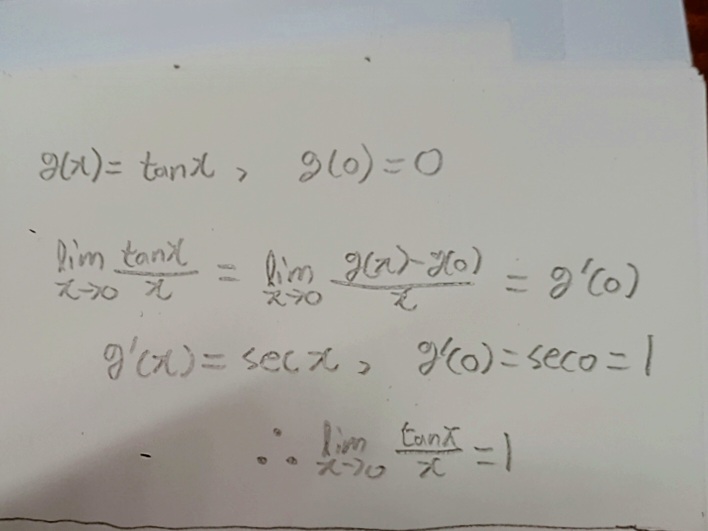 g(x) = tanx, g(0) = 0
lim x→0 tanx/x = lim x→0 g(x)-g(0)/x = g'(0)
g'(x) = secx, g'(0) = sec0 = 1
∴ lim x→0 tanx/x = 1